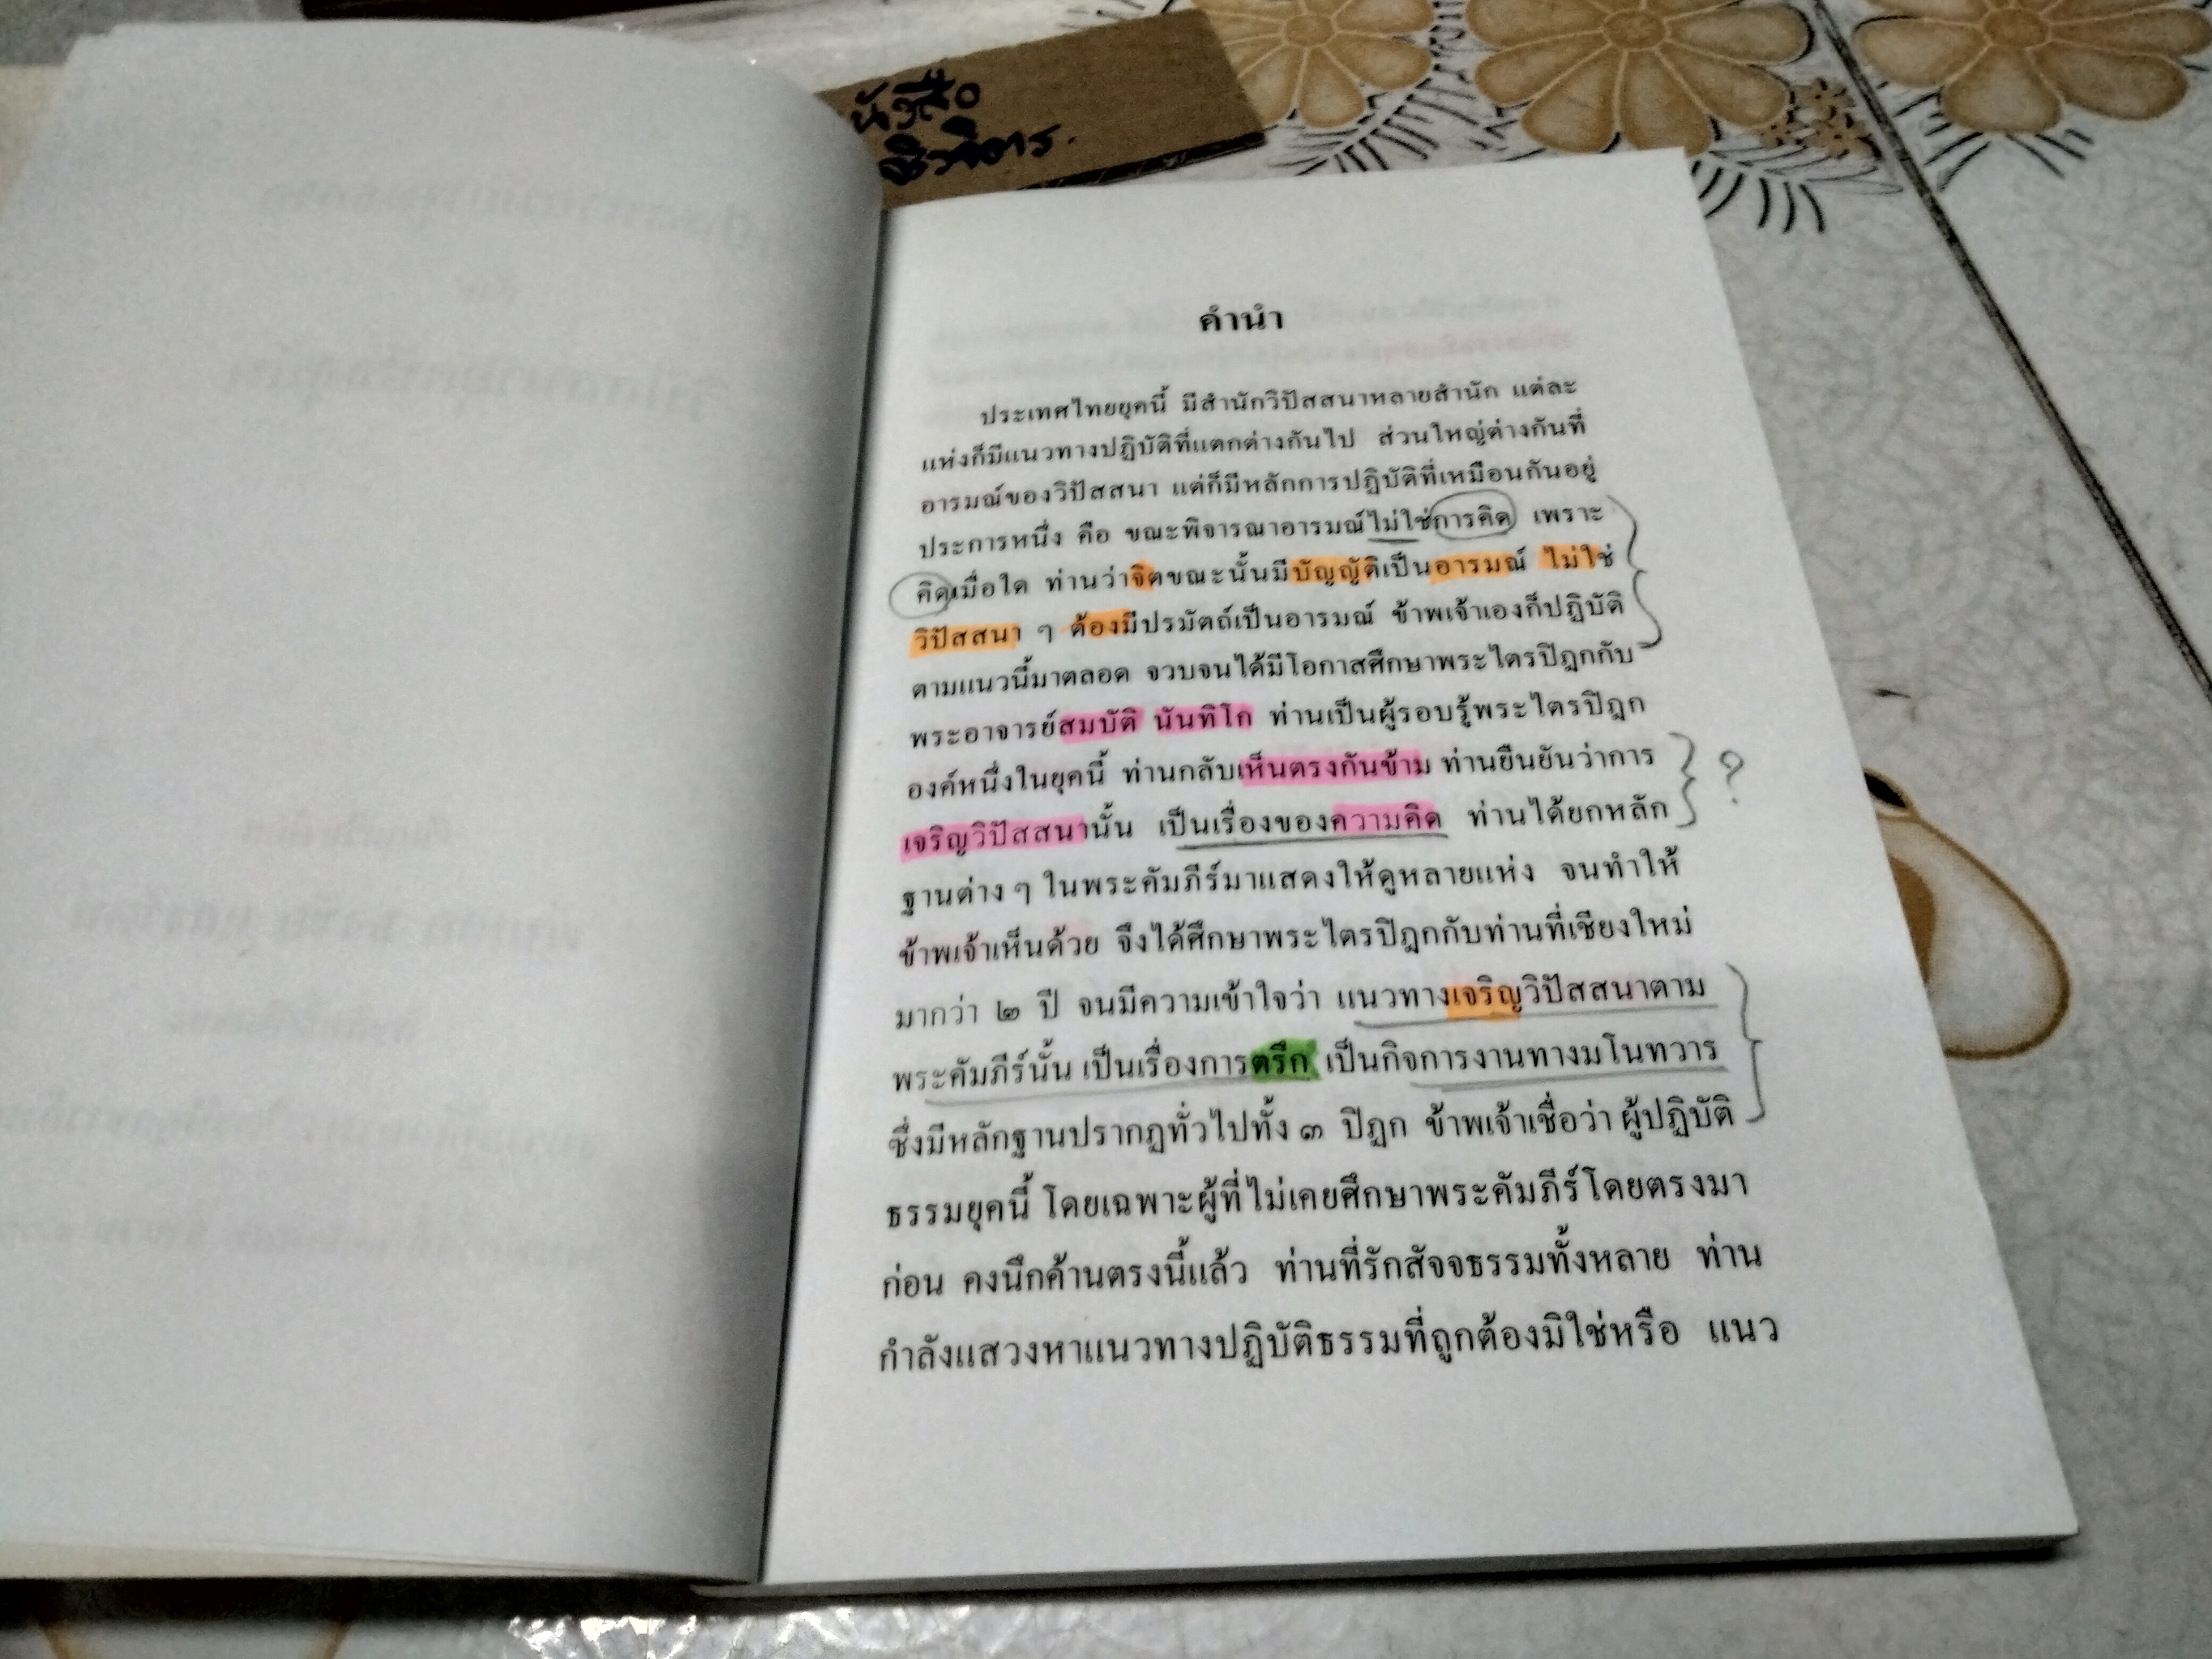 หนังสือ
คำนำ
ประเทศไทยยุคนี้ มีสำนักวิปัสสนาหลายสำนัก แต่ละ
แห่งก็มีแนวทางปฏิบัติที่แตกต่างกันไป ส่วนใหญ่ต่างกันที่
อารมณ์ของวิปัสสนา แต่ก็มีหลักการปฏิบัติที่เหมือนกันอยู่
ประการหนึ่ง คือ ขณะพิจารณาอารมณ์ไม่ใช่การคิด เพราะ
คิดเมื่อใด ท่านว่าจิตขณะนั้นมีบัญญัติเป็นอารมณ์ ไม่ใช่
วิปัสสนา ๆ ต้องมีปรมัตถ์เป็นอารมณ์ ข้าพเจ้าเองก็ปฏิบัติ
ตามแนวนี้มาตลอด จวบจนได้มีโอกาสศึกษาพระไตรปิฎกกับ
พระอาจารย์สมบัติ นันทิโก ท่านเป็นผู้รอบรู้พระไตรปิฎก
องค์หนึ่งในยุคนี้ ท่านกลับเห็นตรงกันข้าม ท่านยืนยันว่าการ
?
เจริญวิปัสสนานั้น เป็นเรื่องของความคิด ท่านได้ยกหลัก
ฐานต่าง ๆ ในพระคัมภีร์มาแสดงให้ดูหลายแห่ง จนทำให้
ข้าพเจ้าเห็นด้วย จึงได้ศึกษาพระไตรปิฎกกับท่านที่เชียงใหม่
มากว่า ๒ ปี จนมีความเข้าใจว่า แนวทางเจริญวิปัสสนาตาม
พระคัมภีร์นั้น เป็นเรื่องการตรึก เป็นกิจการงานทางมโนทวาร
ซึ่งมีหลักฐานปรากฏทั่วไปทั้ง ๓ ปิฏก ข้าพเจ้าเชื่อว่า ผู้ปฏิบัติ
ธรรมยุคนี้ โดยเฉพาะผู้ที่ไม่เคยศึกษาพระคัมภีร์โดยตรงมา
ก่อน คงนึกค้านตรงนี้แล้ว ท่านที่รักสัจจธรรมทั้งหลาย ท่าน
กำลังแสวงหาแนวทางปฏิบัติธรรมที่ถูกต้องมิใช่หรือ แนว